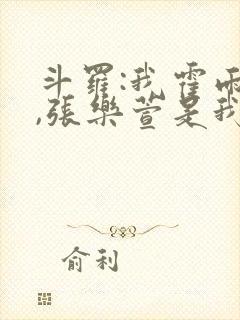 斗羅:我霍雨
,張樂萱是我
俞利